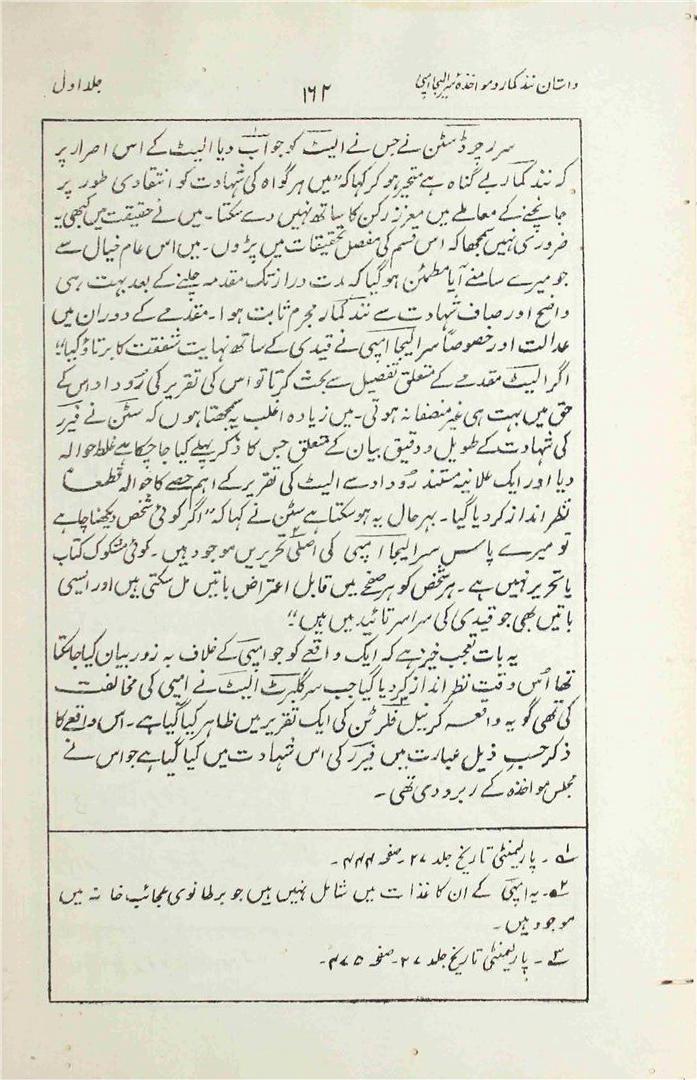 داستان نند کمار و مواخذۂ سرالیجا امپی
۱۶۲
جلد اول
سر رچرڈ سٹن نے جس نے الیٹ کو جواب دیا الیٹ کے اس اصرار پر
کہ نند کمار بے گناہ ہے متحیر ہو کر کہا کہ ”میں ہر گواہ کی شہادت کو انتقادی طور پر
جانچنے کے معاملے میں معزز رکن کا ساتھ نہیں دے سکتا۔ میں نے حقیقت میں کبھی یہ
ضروری نہیں سمجھا کہ اس قسم کی مفصل تحقیقات میں پڑوں۔ میں اس عام خیال سے
جو میرے سامنے آیا مطمئن ہو گیا کہ مدت دراز تک مقدمہ چلنے کے بعد بہت ہی
واضح اور صاف شہادت سے نند کمار مجرم ثابت ہوا۔ مقدمے کے دوران میں
عدالت اور خصوصاً سر الیجا امپی نے قیدی کے ساتھ نہایت شفقت کا برتاؤ کیا“
اگر الیٹ مقدمے کے متعلق تفصیل سے بحث کرتا تو اس کی تقریر کی روداد اس کے
حق میں بہت ہی غیر منصفانہ ہوتی۔ میں زیادہ اغلب یہ سمجھتا ہوں کہ سٹن نے فیرر
کی شہادت کے طویل و دقیق بیان کے متعلق جس کا ذکر پہلے کیا جا چکا ہے غلط حوالہ
دیا اور ایک علانیہ مستند روداد سے الیٹ کی تقریر کے اہم حصے کا حوالہ قطعاً
نظر انداز کر دیا گیا۔ بہر حال یہ ہو سکتا ہے سٹن نے کہا کہ ”اگر کوئی شخص دیکھنا چاہے
تو میرے پاس سر الیجا امپی کی اصلی تحریریں موجود ہیں۔ کوئی مشکوک کتاب
یا تحریر نہیں ہے۔ ہر شخص کو ہر صفحے میں قابل اعتراض باتیں مل سکتی ہیں اور ایسی
باتیں بھی جو قیدی کی سراسر تائید میں ہیں“
یہ بات تعجب خیز ہے کہ ایک واقعے کو جو امپی کے خلاف بہ زور بیان کیا جا سکتا
تھا اُس وقت نظر انداز کر دیا گیا جب سر گلبرٹ الیٹ نے امپی کی مخالفت
کی تھی گو یہ واقعہ کرنیل فلرٹن کی ایک تقریر میں ظاہر کیا گیا ہے۔ اس واقعے کا
ذکر حسب ذیل عبارت میں فیرر کی اس شہادت میں کیا گیا ہے جو اس نے
مجلس مواخذہ کے رو برو دی تھی۔
۱؎۔ پارلیمنٹی تاریخ جلد ۲۷۔ صفحہ ۴۴۴۔
۲؎۔ یہ امپی کے ان کاغذات میں شامل نہیں ہیں جو برطانوی عجائب خانہ میں
موجود ہیں۔
۳؎۔ پارلیمنٹی تاریخ جلد ۲۷۔ صفحہ ۴۷۵۔